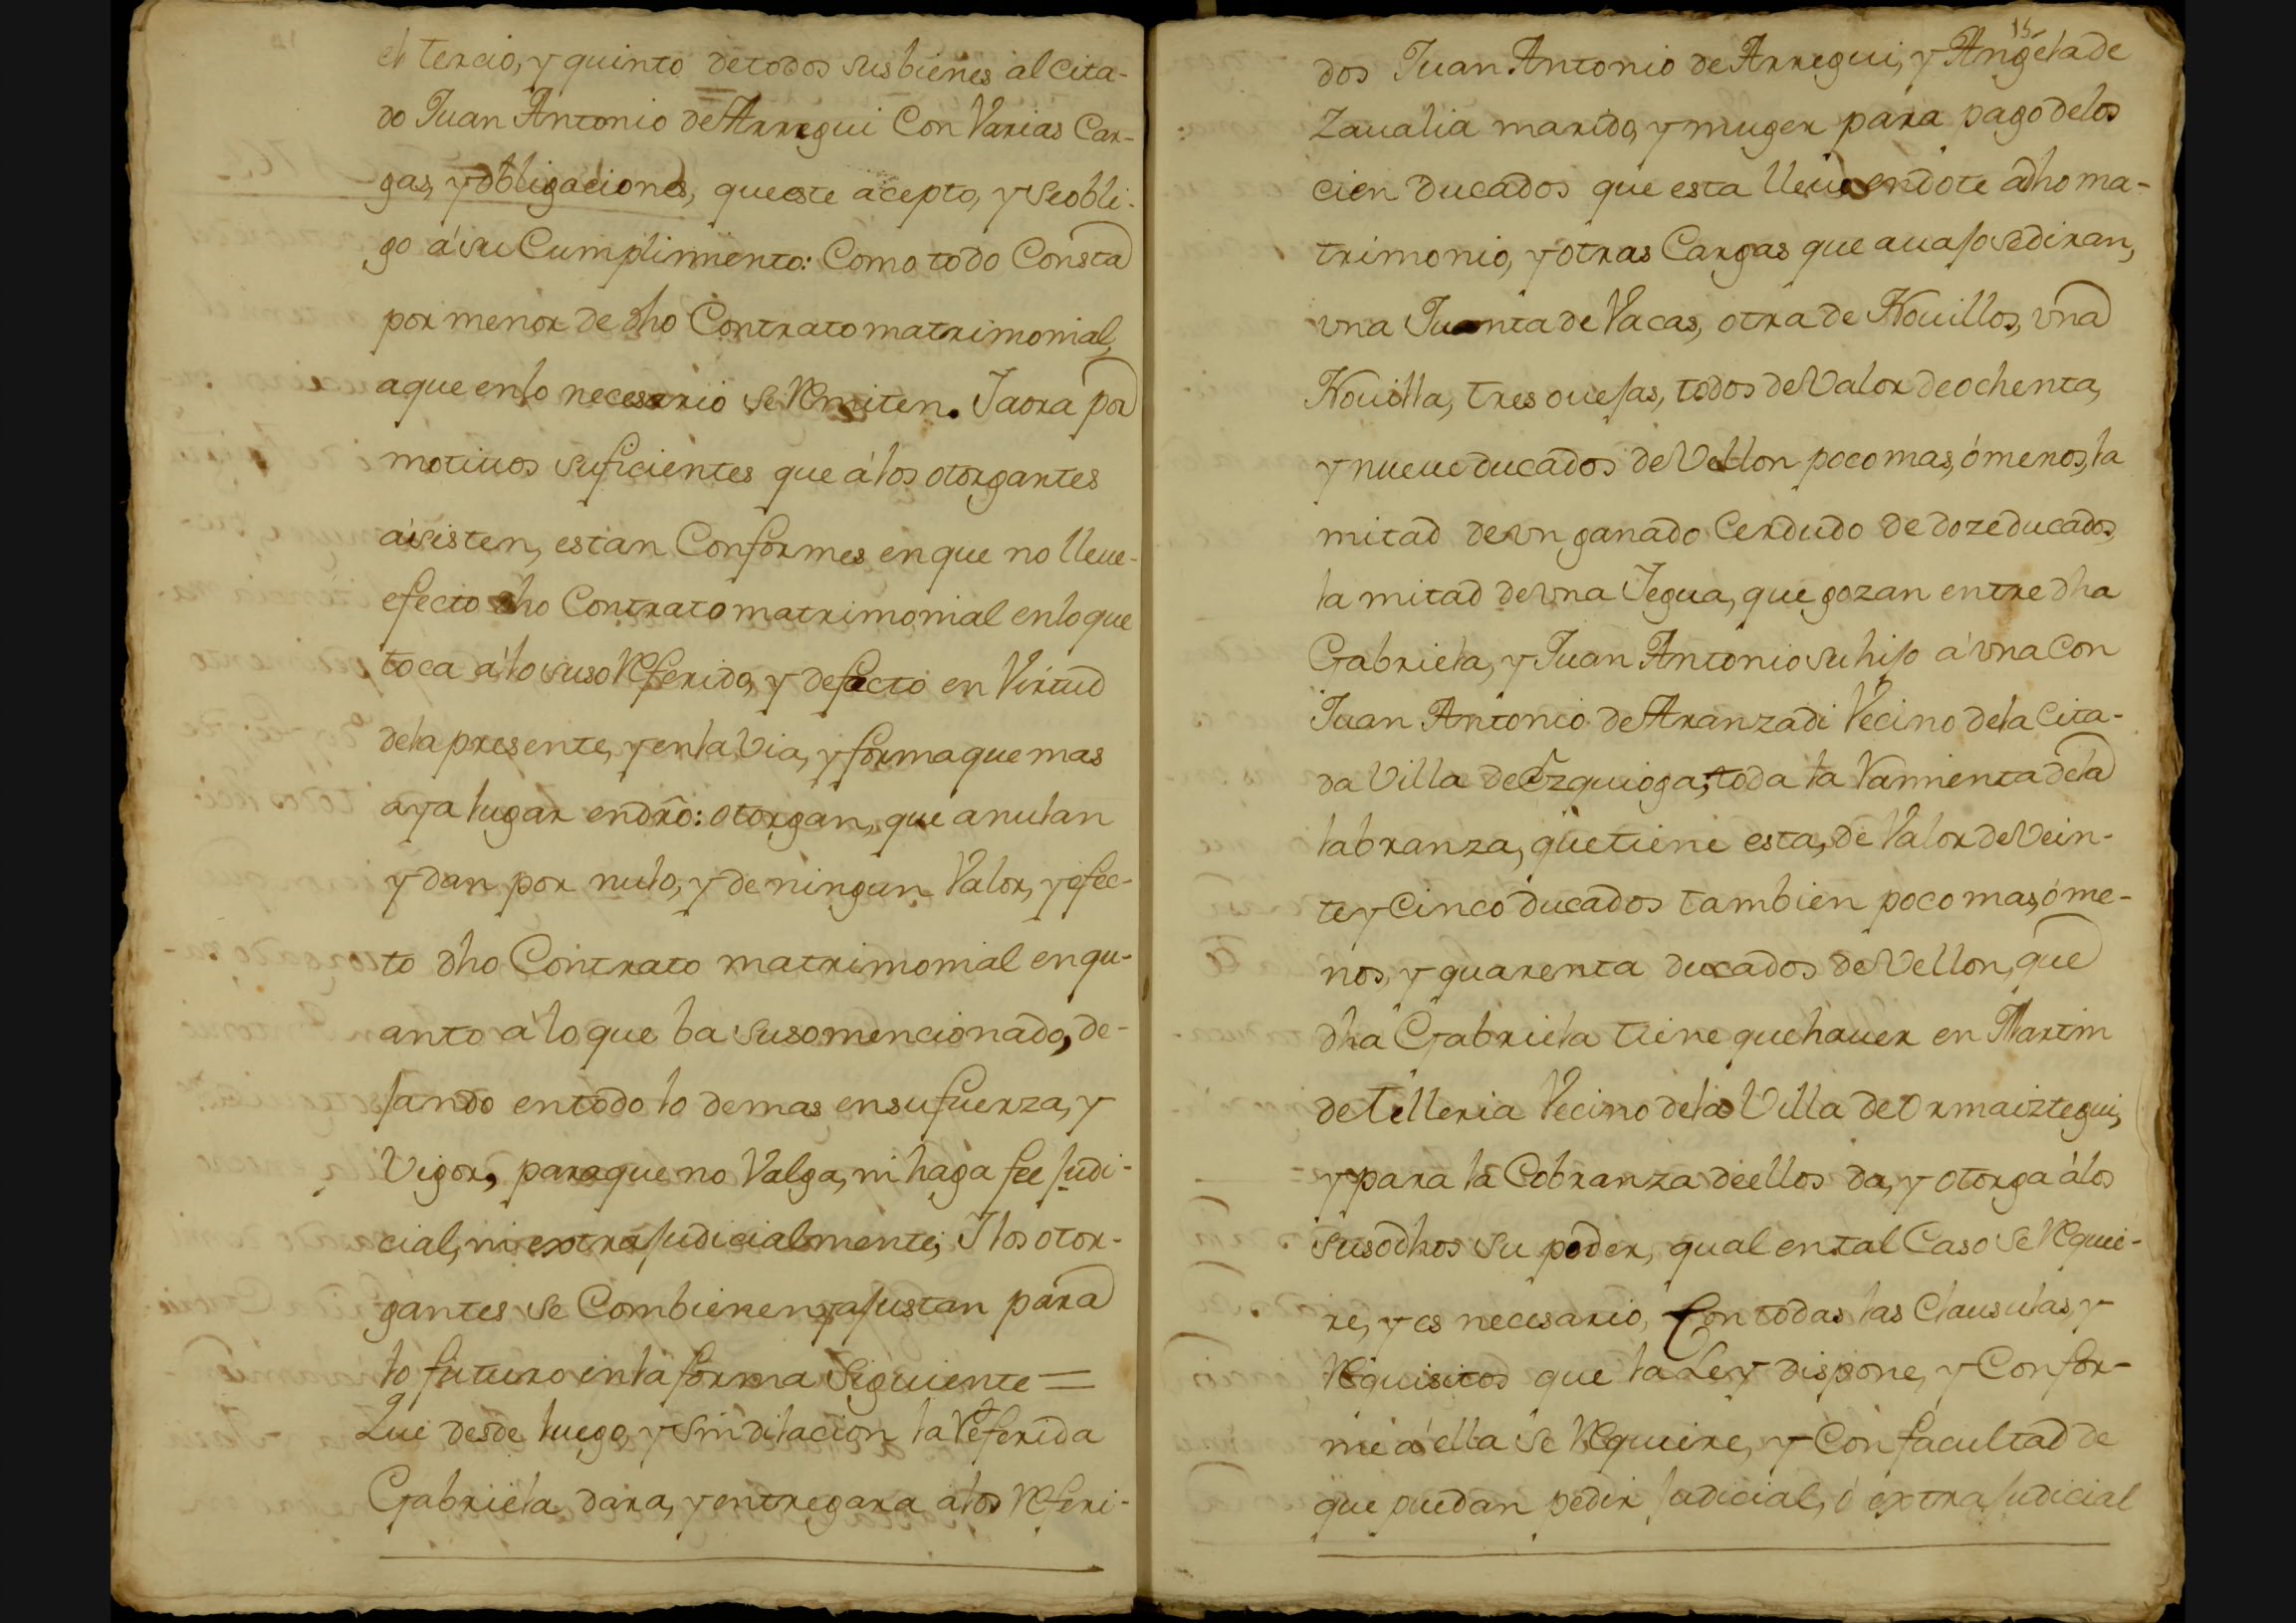 el tercio, y quinto de todos sus bienes al cita-
do Juan Antonio de Arregui Con Varias Car-
gas, y obligaciones, queeste acepto, y se obli-
go á su Cumplimiento: Como todo Consta
por menor de dho Contrato matrimonial,
aque enlo necesario se Remiten. Iaora por
motiuos suficientes que á los otorgantes
asisten, estan Conformes en que no lleue
efecto dho Contrato matrimonial enloque
toca á lo suso Referido, y defecto en Virtud
dela presente, y enla Via, y forma que mas
aya lugar endrõ: otorgan, que anulan
y dan por nulo, y de ningun Valor, y efec-
to dho Contrato matrimonial en qu-
anto á lo que ba susomencionado, de-
jando entodo lo demas ensufuerza, y
Vigor, paraque no Valga, ni haga fee judi-
cial, ni extrajudicialmente; I los otor-
gantes se Combienen, y ajustan para
lo futuro enla forma Siguiente =
Que desde luego, y sin dilacion la Referida
Gabriela dara, y entregara alos Referi-
15
dos Juan Antonio de Arregui, y Angela de
Zaualia marido, y muger para pago delos
cien ducados que esta lleuó endote adho ma-
trimonio, y otras Cargas que auajo se diran,
vna Juanta de Vacas, otra de Nouillos, vna
Nouilla, tres ouejas, todos de Valor de ochenta,
y nueue ducados de Vellon poco mas, ó menos, la
mitad de vn ganado Cerdudo de doze ducados,
la mitad de vna Iegua, que gozan entre dha
Gabriela, y Juan Antonio su hijo á vna Con
Juan Antonio de Aranzadi Vecino dela Cita-
da Villa de Ezquioga, toda la Ramienta dela
labranza, que tiene esta, de Valor de Vein-
te y Cinco ducados tambien poco mas, ó me-
nos, y quarenta ducados de Vellon, que
dha Gabriela tiene que hauer en Martin
de Telleria Vecino dela Villa de Ormaiztegui,
y para la Cobranza de ellos da, y otorga á los
susodhos su poder, qual en tal Caso se Requie-
re, y es necesario, Con todas las Clausulas, y
Requisitos que la Ley dispone, y Confor-
me á ella se Requiere, y Con facultad de
que puedan pedir judicial, ó extrajudicial